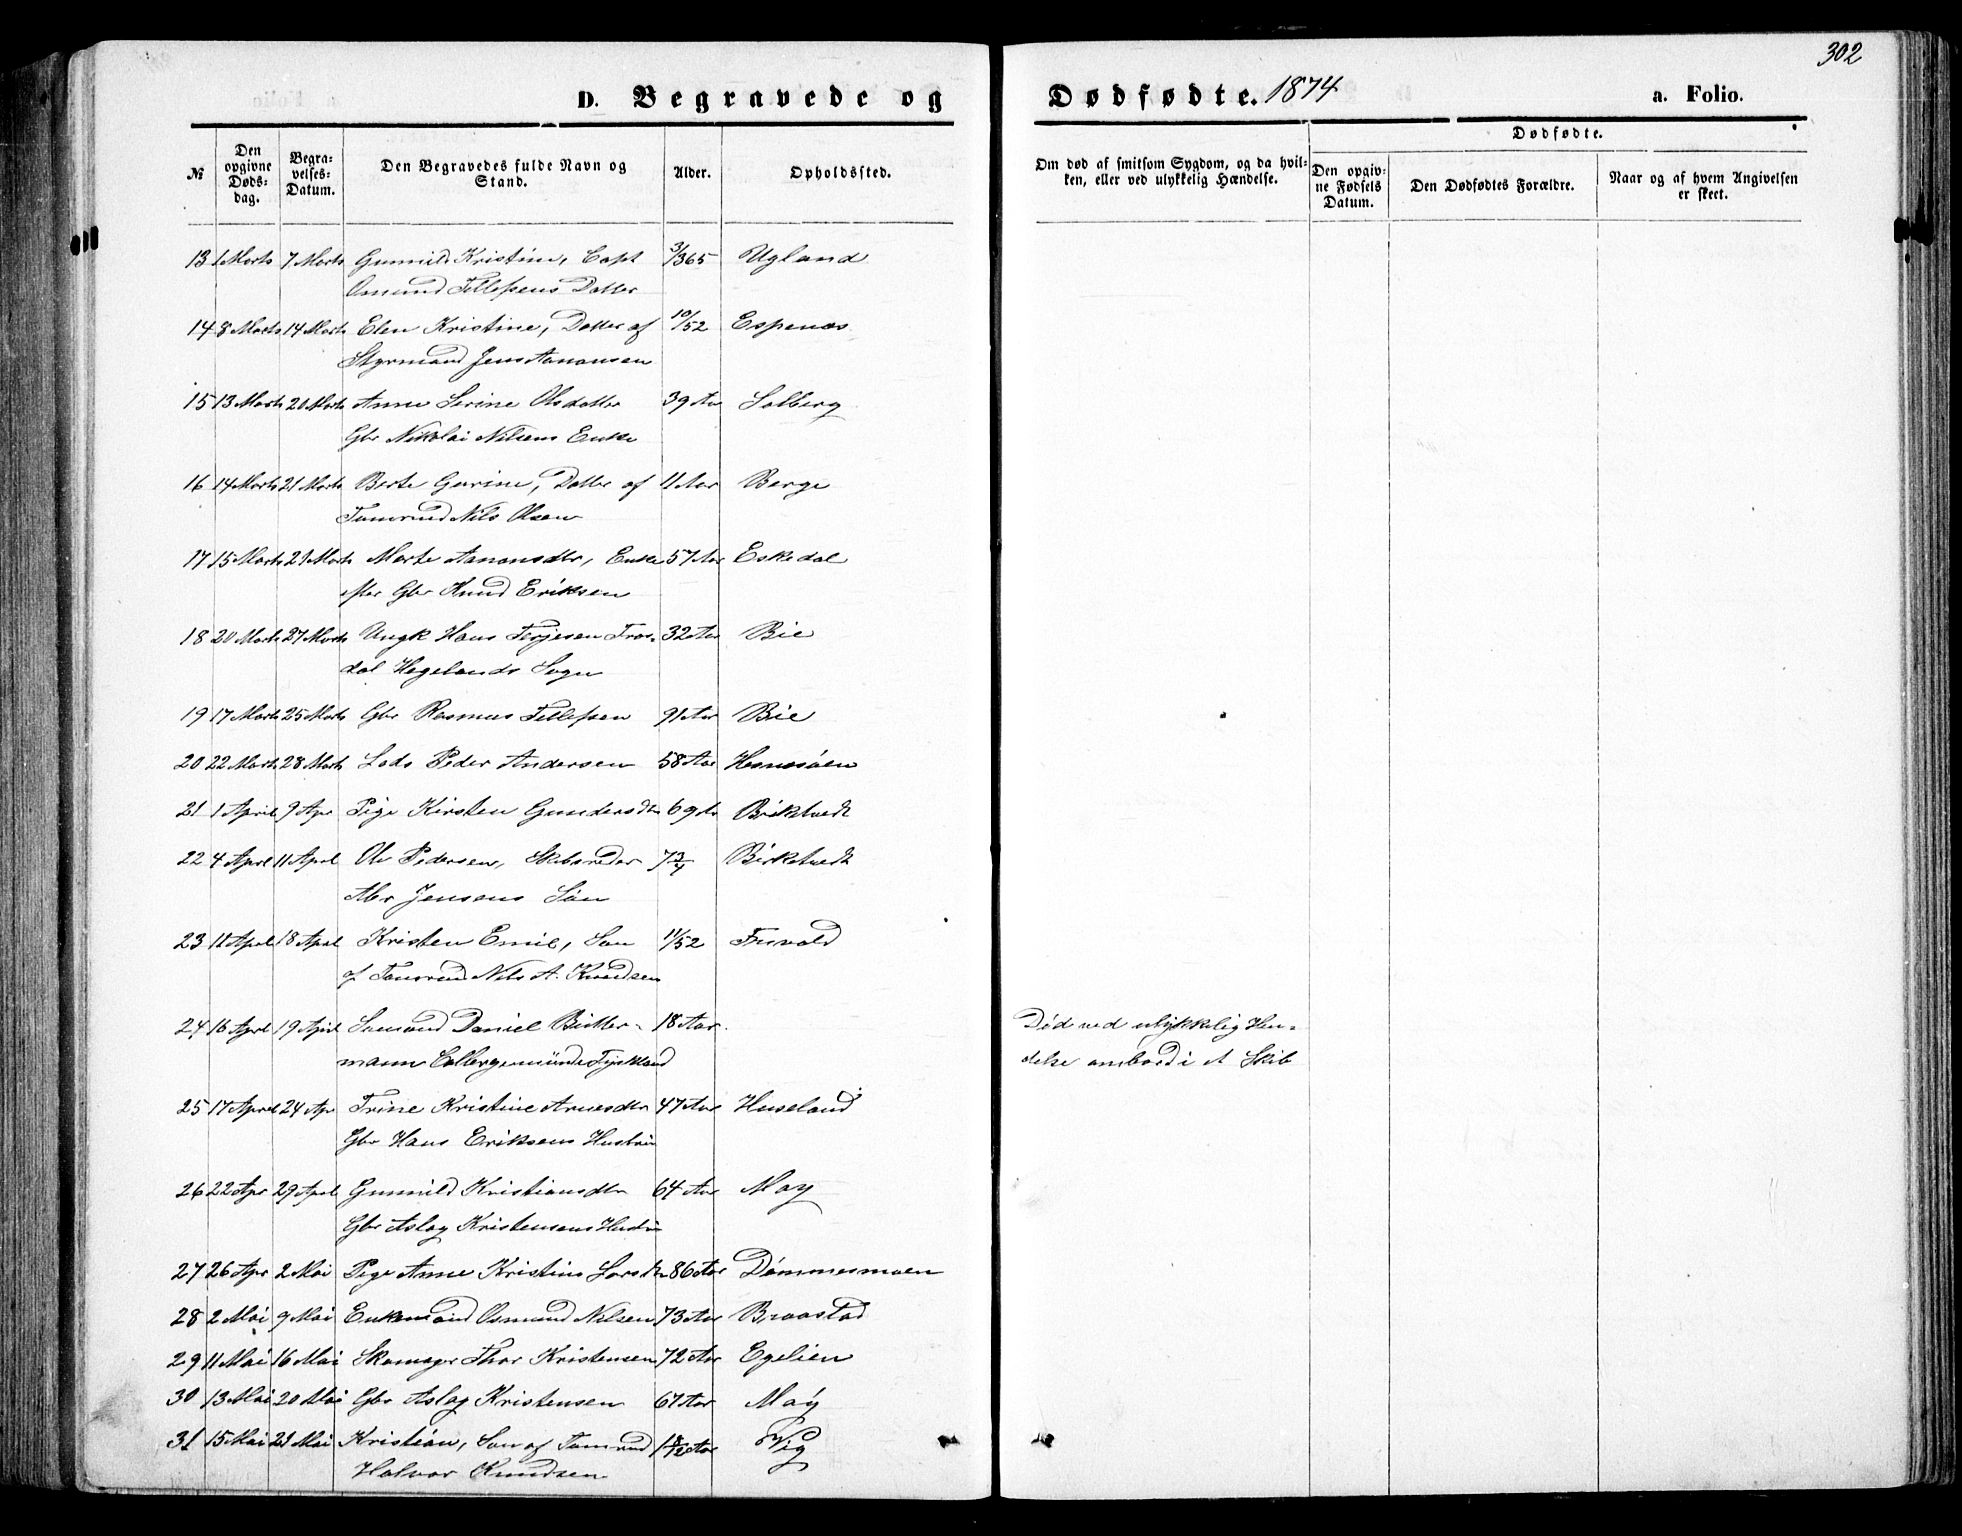 302
D. Begravede og Dødfødte. 1874 a. Folio.
№
Den opgivne Døds-dag.
Begra-velses-Datum.
Den Begravedes fulde Navn og Stand.
Alder.
Opholdssted.
Om død af smitsom Sygdom, og da hvil-
ken, eller ved ulykkelig Hændelse.
Dødfødte.
Den opgiv-ne Fødsels Datum.
Den Dødfødtes Forældre.
Naar og af hvem Angivelsen
er skeet.
13 1 Marts 7 Marts Gunnild Kristine, Capt 3/365 Ugland
Osmund Tellefsens Datter
14 8 Marts 14 Marts Elen Kristine, Datter af 10/52 Espenæs
Styrmand Jens Aanonsen
15 13 Marts 20 Marts Anne Serine Olsdatter 39 Aar Solberg
Gbr Nikolai Nilsens Enke
16 14 Marts 21 Marts Berte Gurine, Datter af 11 Aar Berge
Tømrmd Nils Olsen
17 15 Marts 21 Marts Marte Aanonsdtr, Enke 57 Aar Eskedal
efter Gbr Knud Eriksen
18 20 Marts 27 Marts Ungk Hans Terjesen Tros- 32 Aar Bie
dal Hegelands Sogn
19 17 Marts 25 Marts Gbr Rasmus Tellefsen 91 Aar Bie
20 22 Marts 28 Marts Lods Peder Andersen 58 Aar Hesnesøen
21 1 April 9 Apr Pige Kirsten Gundersdtr 69 Ar Birktvedt
22 4 Aprl 11 Aprl Ole Pedersen, Skibsreder 7 3/4 Birketvedt
Abr Jensens Søn
23 11 Aprl 18 Aprl Kristen Emil, Søn 11/52 Frivold
af Tømrmd Nils A. Knudsen
24 16 Aprl 19 Aprl Sømand Daniel Bitter- 18 Aar Død ved ulykkelig Hen-
mann Colbergermünde Tyskland delse ombord i et Skib
25 17 Aprl 24 Apr Trine Kristine Arnesdtr 47 Aar Huseland
Gbr Hans Eriksens Hustru
26 22 Apr 29 Aprl Gunnild Kristiansdtr 64 Aar Moy
Gbr Aslag Kristensens Hustru
27 26 Apr 2 Mai Pige Anne Kristine Larsdtr 86 Aar Dømmesmoen
28 2 Mai 9 Mai Enkemand Osmund Nilsen 73 Aar Braastad
29 11 Mai 16 Mai Skomager Thor Kristensen 72 Aar Egelien
30 13 Mai 20 Mai Gbr Aslag Kristensen 67 Aar Moy
31 15 Mai 21 Mai Kristian, Søn af Tømrmd 1 8/12 Aar Vig
Halvor Knudsen